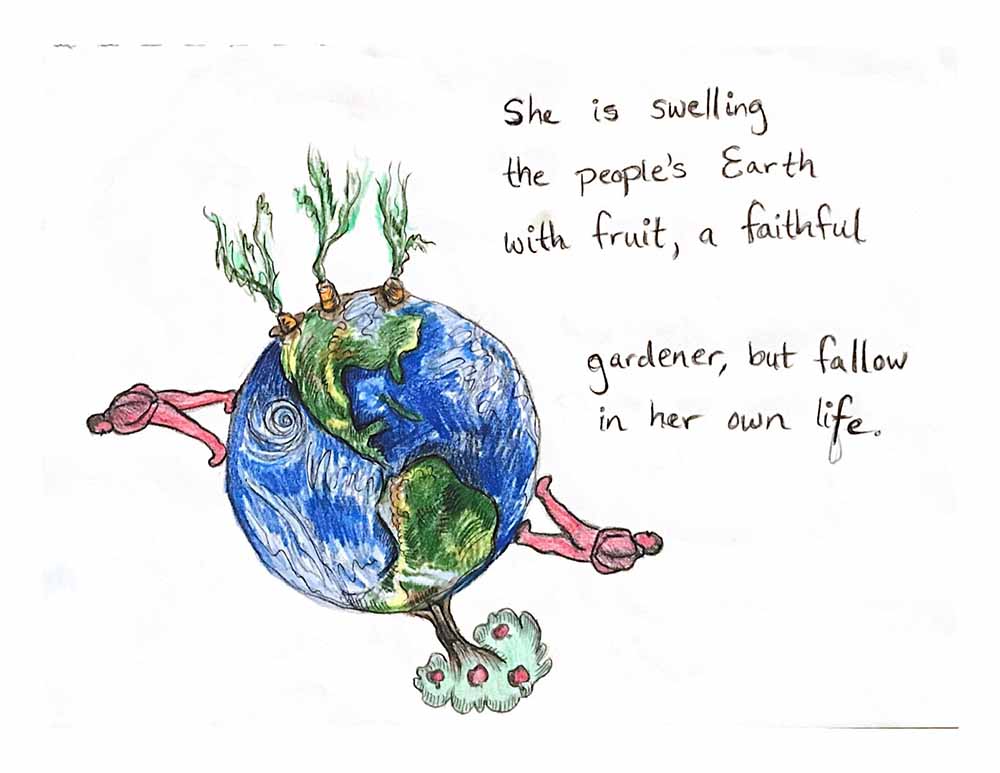 She is swelling
the people's Earth
with fruit, a faithful
gardener, but fallow
in her own life.